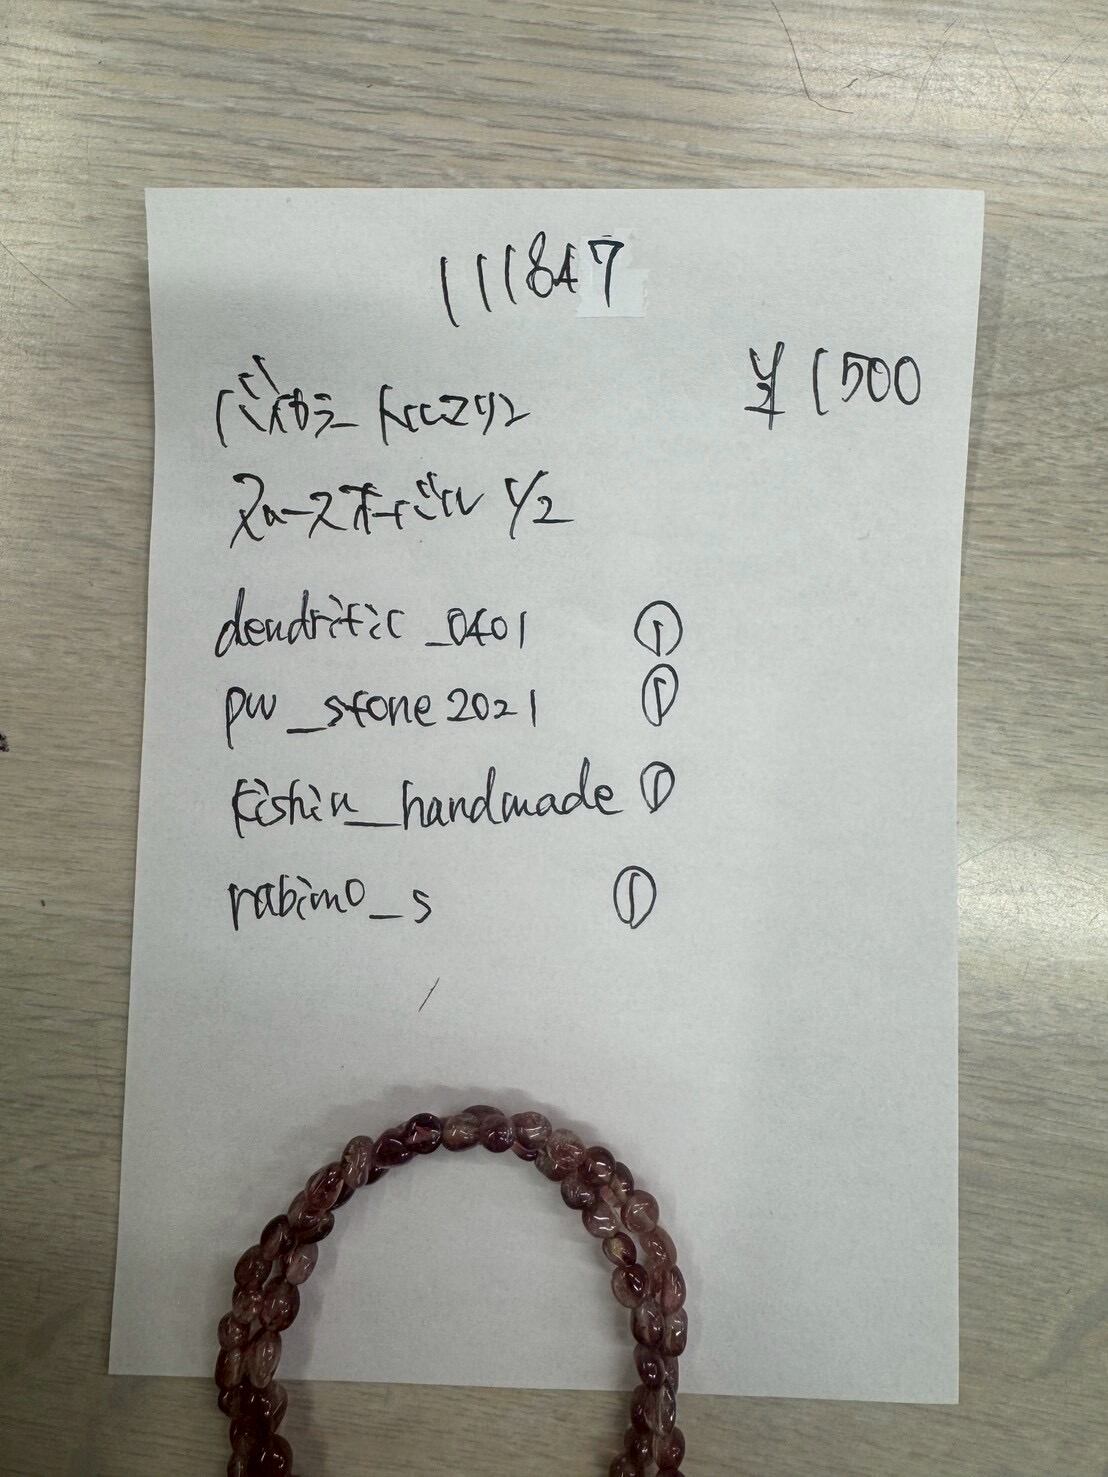 111847
バイカラートルマリン ¥1500
スムースオーバル 1/2
dendritic_0401 ①
pw_stone2021 ①
kishin_handmade ①
rabimo_s ①